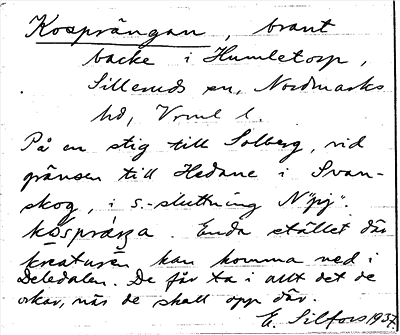 Kosprängan, brant
backe i Humletorp,
Silleruds sn, Nordmarks
hd, Vrml l.
På en stig till Solberg, vid
gränsen till Hedane i Svan-
skog, i s.-sluttning
kòspráŋa. Enda stället där
kreaturen kan komma ned i
Deledalen. De får ta i allt det de
orkar, när de skall opp där.
E. Silfors 1937.